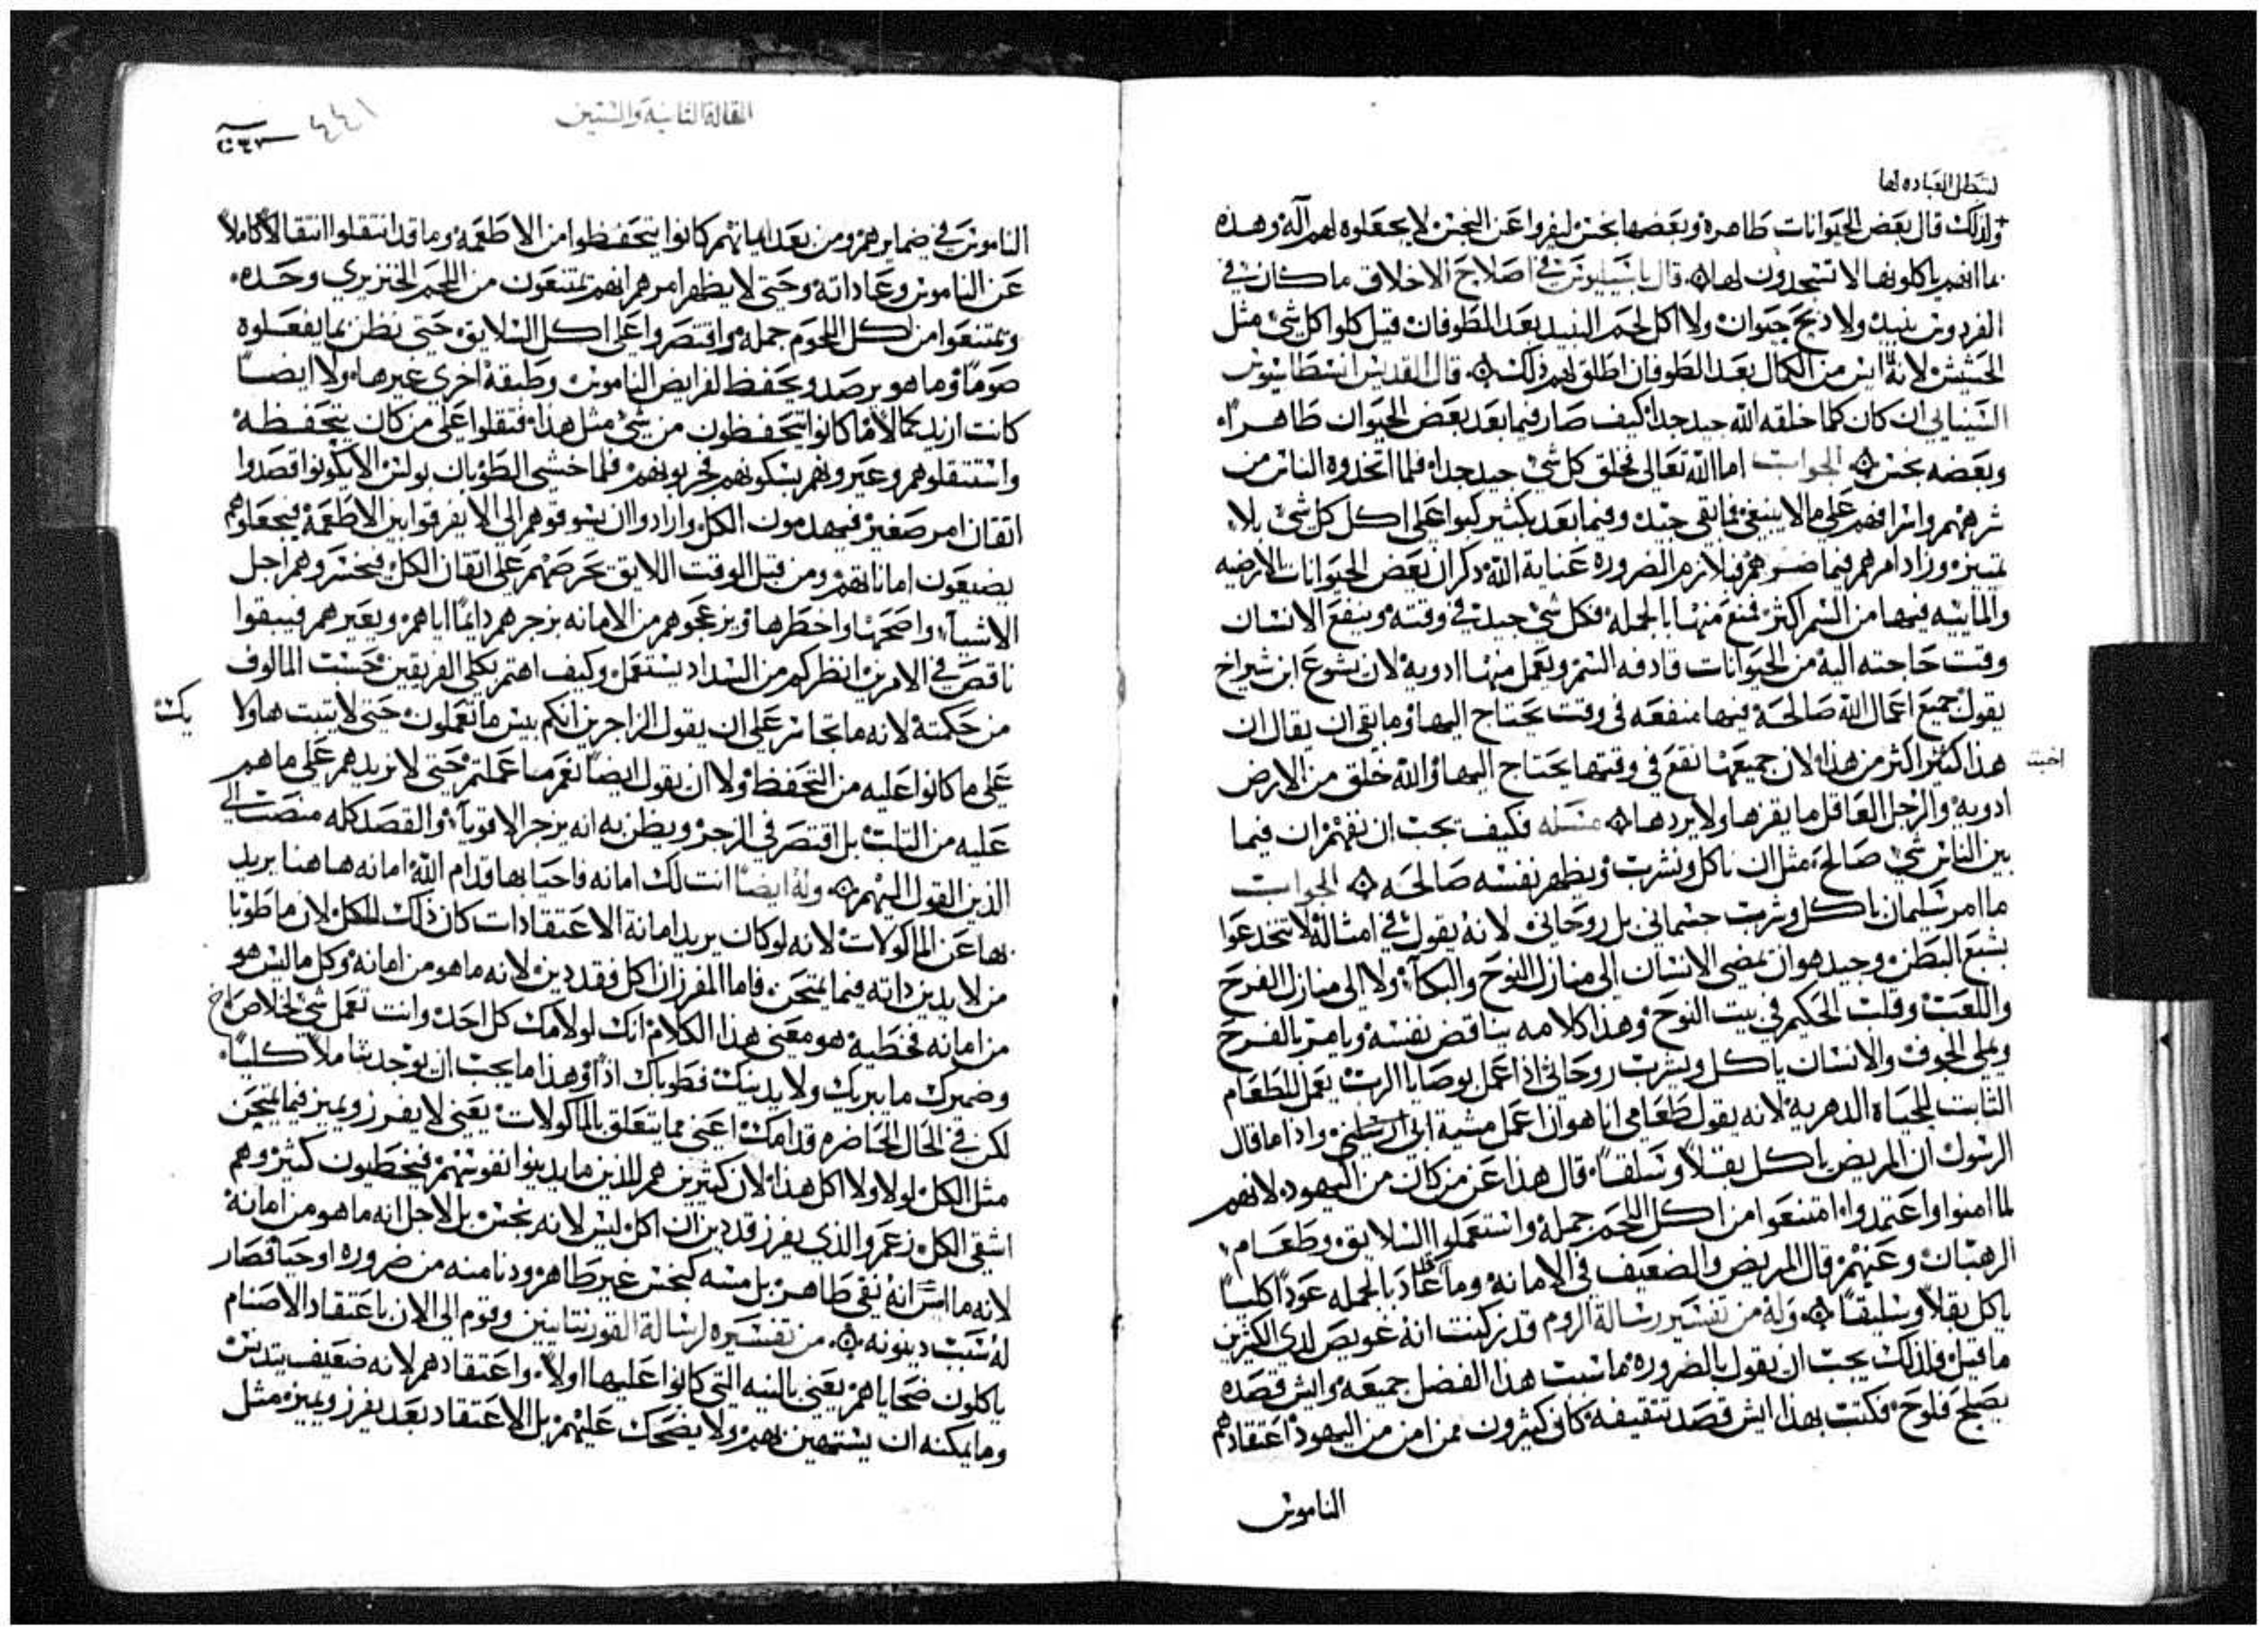 لتبطل العباده لها
ولذلك قال بعض الحيوانات طاهرة وبعضها نجس ليفروا عن النجس لا يجعلوه لهم آلة وهذه
بما انهم ياكلونها لا تسجدون لها قال باسيليوس في اصلاح الاخلاق ما كان في
الفردوس نبيد ولا دبح حيوان ولا اكل لحم النبيد بعد الطوفان قيل كلوا كل شي مثل
الحشيش لانه ايس من الكمال بعد الطوفان اطلق لهم ذلك قال القديس انسطاسيوس
السينايي ان كان كلما خلقه الله جيد جدا كيف صار فيما بعد بعض الحيوان طاهرا
وبعضه نجس الجواب اما الله تعالى فخلق كل شي جيد جدا فلما اتخدوه الناس من
شرههم واسرافهم على ما لا ينبغي فما بقي جيد وفيما بعد بكثير كبوا على اكل كل شي بلا
تمييز وزاد امرهم فيما ضرهم فبلازم الضروره عناية الله دكر ان بعض الحيوانات الارضيه
والماييه فيها من السم اكثر فمنع منها بالجمله فكل شي جيد في وقته وينفع الانسان
وقت حاجته اليه من الحيوانات قادفه السم ويعمل منها ادوية لان يشوع ابن شيراخ
يقول جميع اعمال الله صالحة فيها منفعه في وقت يحتاج اليها وما بقي ان يقال ان
هذا اكثر من هذا لان جميعها نفع في وقتها يحتاج اليها والله خلق من الارض
اخبث
ادويه والرجل العاقل ما يقرها ولا يردها مسله فكيف يجب ان نفهم ان فيما
بين الناس شي صالح مثل ان ناكل ونشرب ويظهر نفسه صالحه الجواب
ما امر سليمان باكل وشرب جسماني بل روحاني لانه يقول في امثاله لا تنخدعوا
بشبع البطن وجيد هو ان يمضي الانسان الى منازل النوح والبكاء ولا الى منازل الفرح
واللعب وقلب الحكيم في بيت النوح وهذا كلامه يناقض نفسه ويامر بالفرح
وملي الجوف والانسان ياكل ويشرب روحاني اذا عمل بوصايا الرب يعمل للطعام
الثابت للحياه الدهرية لانه يقول طعامي انا هو ان اعمل مشية ابي ارسلني واذا ما قال
الرسول ان المريض ياكل بقلا وسلقا قال هذا عن من كان من اليهود لانهم
لما امنوا واعتمدوا امتنعوا من اكل اللحم جملة واستعملوا السلايق وطعام
الرهبان وعنهم قال المريض والضعيف في الامانة وما عاد بالجمله عودا كليا
ياكل بقلا وسليقا وله من تفسير رسالة الروم قد ركبت انه عويص لدى الكثيرين
ما قيل فلذلك يجب ان يقول بالضروره ما سبب هذا الفصل جميعه وايش قصده
يصلح فلوح فكتب بهذا ايش قصد تثقيفه كان كثيرون ممن امن من اليهود اعتقادهم
الناموس
المقالة الثانية والستين
٤٤١
الناموس في ضمايرهم ومن بعد ايمانهم كانوا يتحفظوا من الاطعمه وما قد انتقلوا انتقالا كاملا
عن الناموس وعاداته وحتى لا يظهر امرهم انهم يمتنعون من اللحم الخنزيري وحده
ويمتنعوا من اكل اللحوم جملة واقتصروا على اكل السلايق حتى نظن بما يفعلوه
صوما وما هو برصد ويحفظ لفرايض الناموس وطبقة اخرى غيرها ولا ايضا
كانت ازيد كمالا ما كانوا يتحفظون من شي مثل هذا فتقلوا على من كان يتحفظه
واستثقلوهم وعيروهم فلما خشي الطوبان بولس الا يكونوا قصدوا
اتقان امر صغير فيهدمون الكل وارادوا ان يسوقوهم الى الا يفرقوا بين الاطعمة فيجعلوهم
يضيعون اماناتهم ومن قبل الوقت اللايق تحرصهم على اتقان الكل فيخسروهم اجل
الاشياء واصحها واخطرها ويزعجوهم من الامانه بزجرهم دايما اياهم وبعيرهم فيبقوا
ناقص في الامرين انظر كم من السداد يستعمل وكيف اهتم بكلى الفريقين حسب المالوف
من حكمته لانه ما تجاسر على ان يقول للزاجرين انكم بيس ما تعملون حتى لا يتبت هاولا
على ما كانوا عليه من التحفظ ولا ان يقول ايضا نعم ما عملتم حتى لا نزيدهم على ما هم
عليه من الثلب بل اقتصر في الزجر ويظن به انه يزجر الاقوياء والقصد كله منصب الى
الذين القول اليهم وله ايضا انت لك امانه فاحيا بها قدام الله امانه هاهنا يريد
بها عن الماكولات لانه لو كان يريد امانة الاعتقادات كان ذلك للكل لان ما طوبا
من لا يدين داته فيما يمتحن فاما المفرز ان اكل فقد دين لانه ما هو من امانه وكل ما ليس هو
من امانه فخطية هو معنى هذا الكلام انك لو لامك كل احد وانت تعمل شي لخلاص اخ
وضميرك ما يبريك ولا يدينك فطوباك اذا وهذا ما يجب ان يوجد شاملا كليا
لكن في الحال الحاضره قدامك اعني مما يتعلق بالماكولات يعني لا يفرز ويميز فيما يمتحن
مثل الكل لولا ولا اكل هذا لان كثيرين هم للذين ما يدينوا نفوسهم فيخطيون كثير وهم
اشقى الكل زعم والذي يفرز قد دين ان اكل ليس لانه نجس بل لاجل انه ما هو من امانة
لانه ما اسر انه نقي طاهر بل مسه كنجس غير طاهر ودنا منه من ضروره او حيا فصار
له سبب دينونه من تفسيره لرسالة القورنثانيين وقوم الى الان باعتقاد الاصنام
ياكلون ضحاياهم يعني بالنيه التي كانوا عليها اولا واعتقادهم لانه ضعيف يتدنس
وما يمكنه ان يستهين بهم ولا يضحك عليهم بل الاعتقاد بعد يفرز ويميز مثل